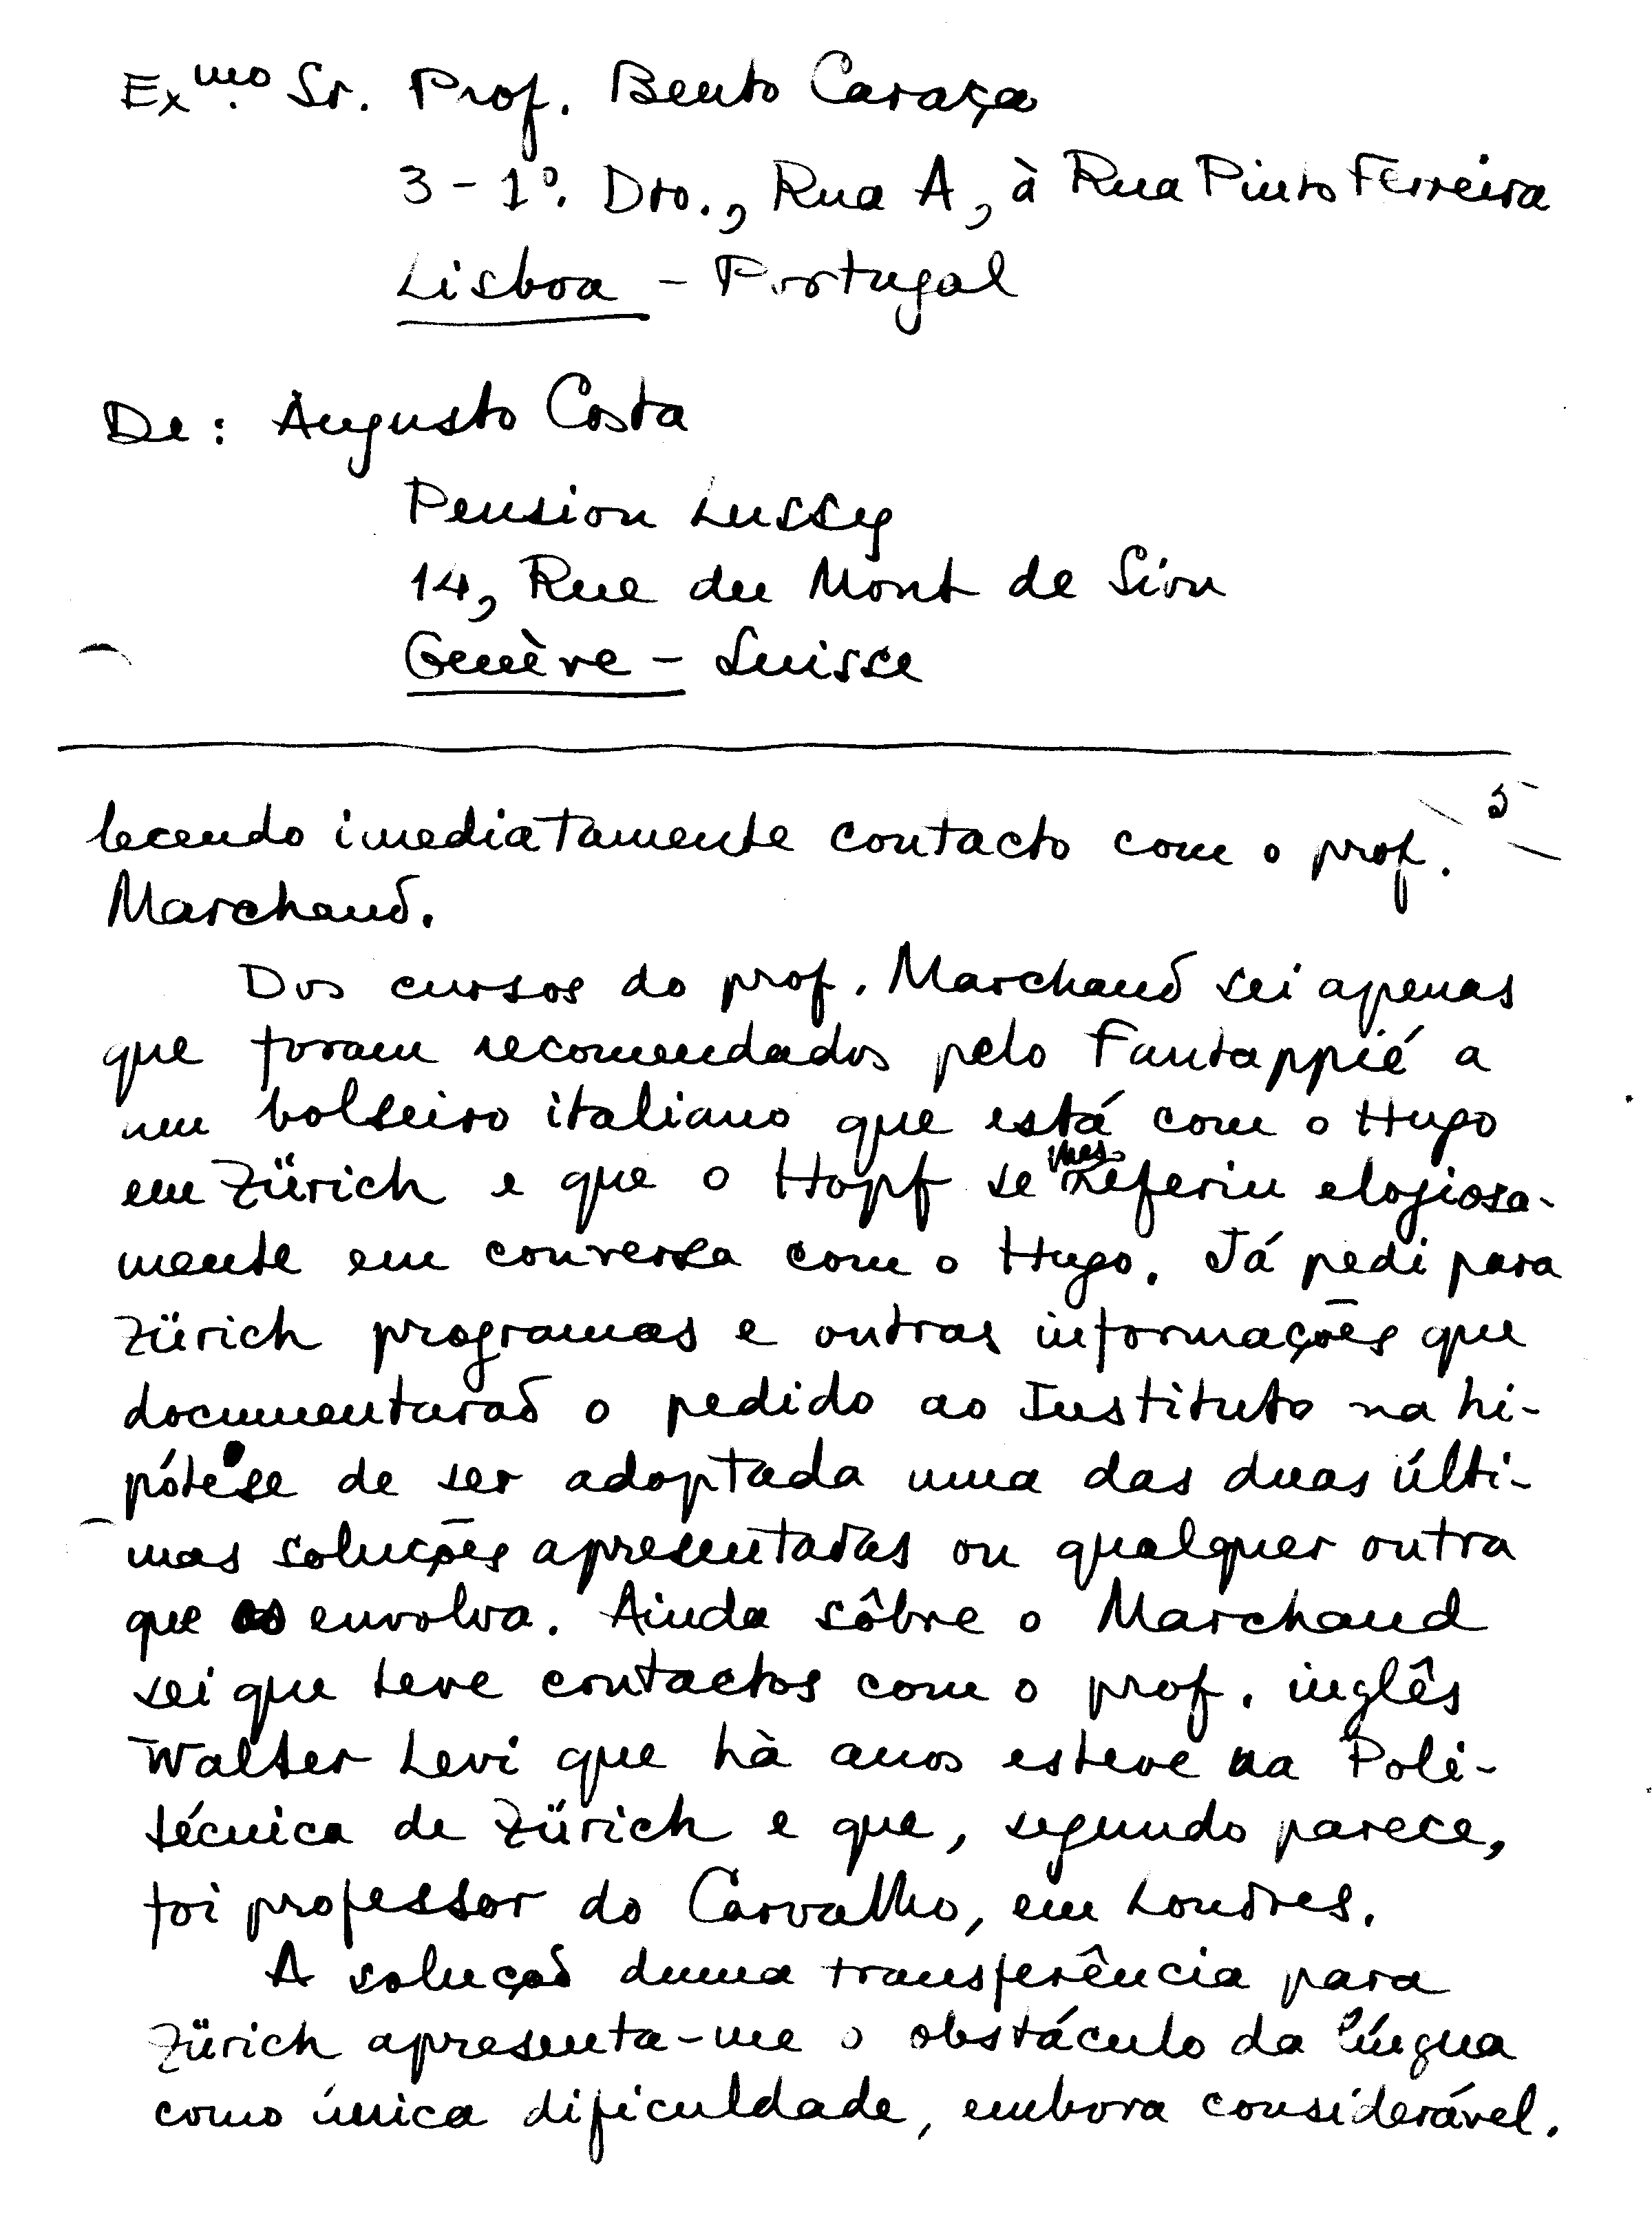 Ex.mo Sr. Prof. Bento Caraça
3-1º. Dto., Rua A, à Rua Pinto Ferreira
Lisboa - Portugal
De: Augusto Costa
Pension Lussy
14, Rue du Mont de Sion
Genève - Suisse
5
lecendo imediatamente contacto com o prof.
Marchand.
Dos cursos do prof. Marchand sei apenas
que foram recomendados pelo Fantappié a
um bolseiro italiano que está com o Hugo
em Zürich e que o Hopf se lhes referiu elogiosa-
mente em conversa com o Hugo. Já pedi para
Zürich programas e outras informações que
documentarão o pedido ao Instituto na hi-
pótese de ser adoptada uma das duas últi-
mas soluções apresentadas ou qualquer outra
que os envolva. Ainda sôbre o Marchand
sei que teve contactos com o prof. inglês
Walter Levi que hà anos esteve na Poli-
técnica de Zürich e que, segundo parece,
foi professor do Carvalho, em Londres.
A solução duma transferência para
Zürich apresenta-me o obstáculo da língua
como única dificuldade, embora considerável.